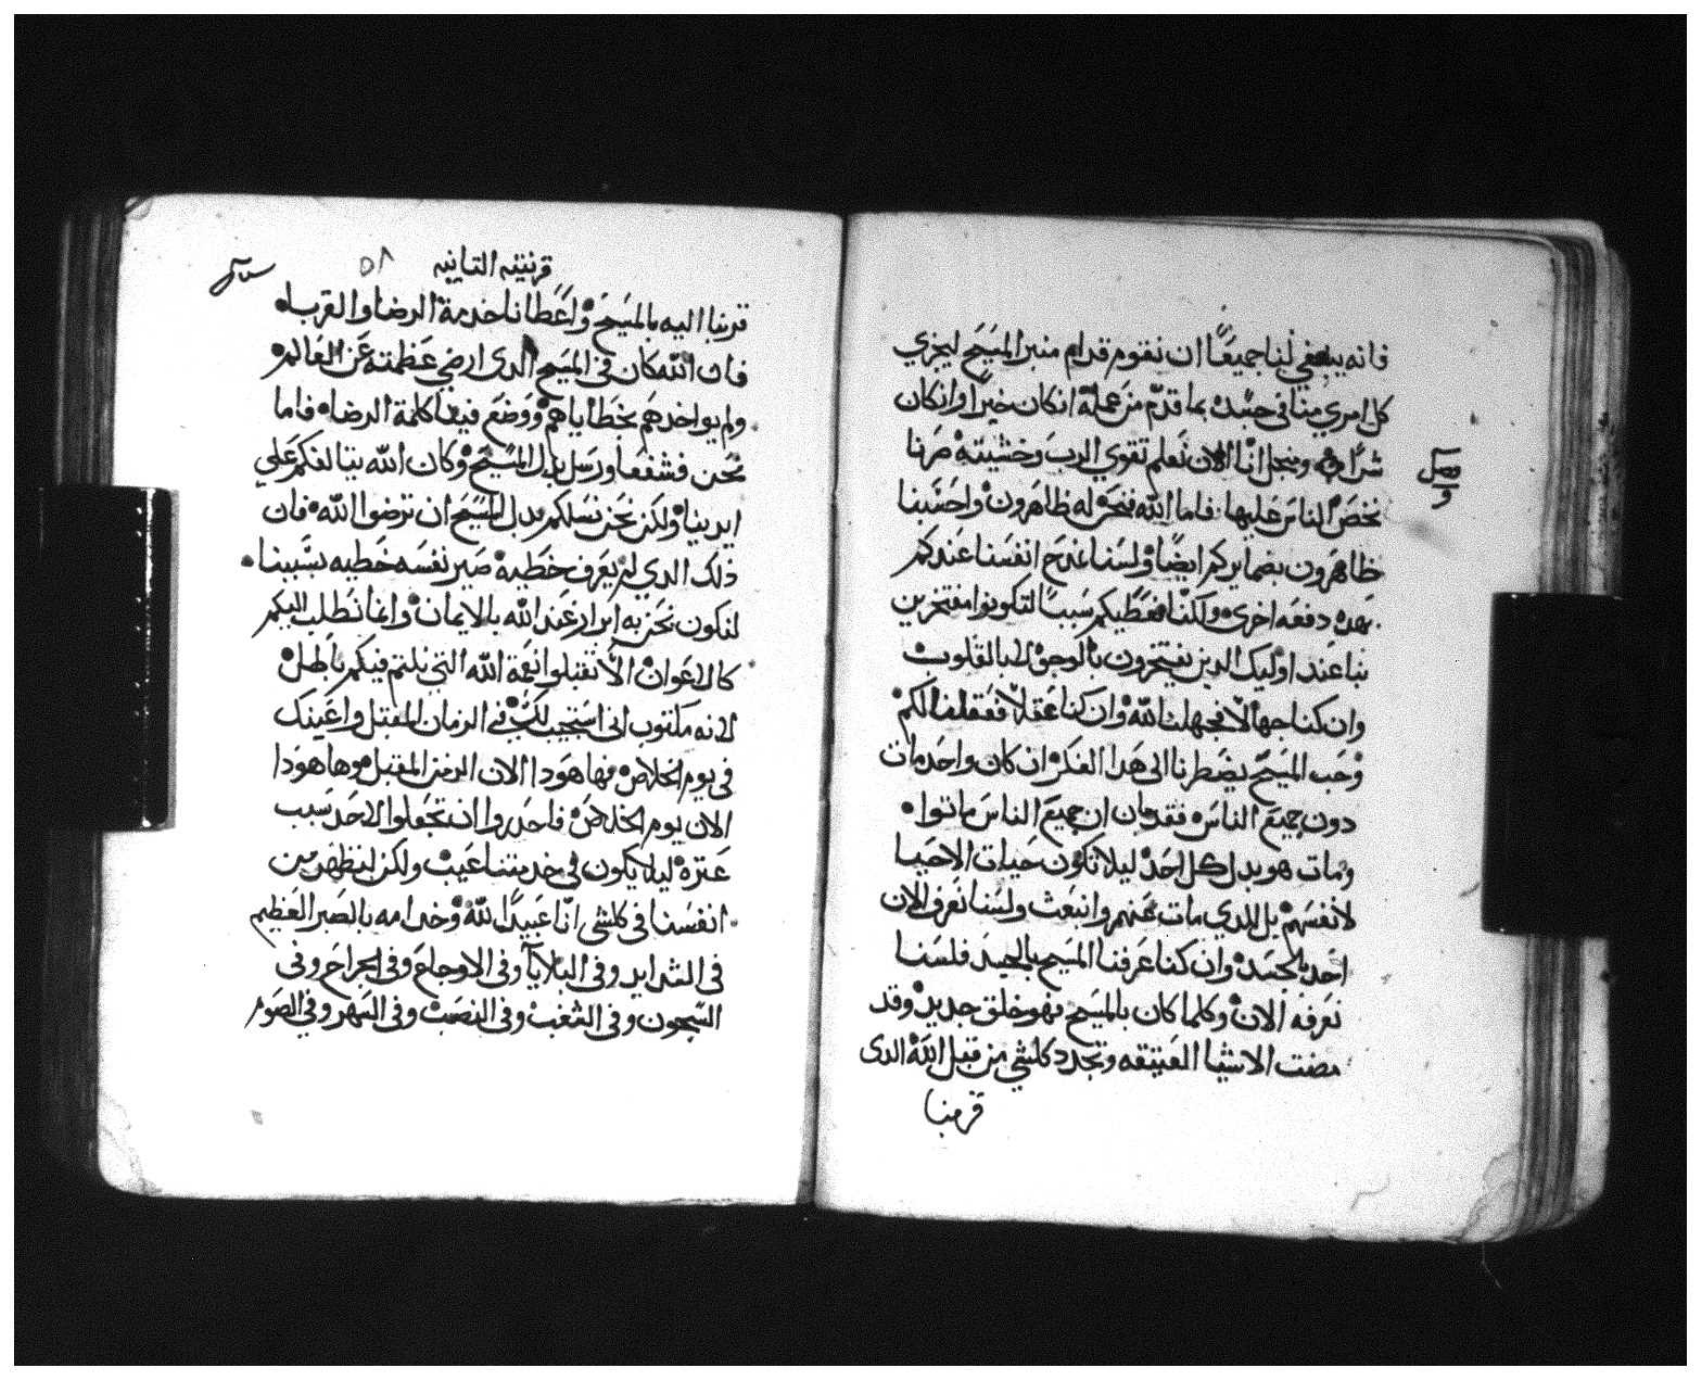 فانه ينبغي لنا جميعًا ان نقوم قدام منبر المسيح ليجزي
كل امري منا في جسده بما قدم من عمله انكان خيرًا وانكان
شرًا ومنجل انا الان نعلم تقوي الرب وخشيته صرنا
فصل
و
نخص الناس عليها فاما الله فنحن له ظاهرون واحسبنا
ظاهرون بضمايركم ايضًا ولسنا نمدح انفسنا عندكم
بهده دفعه اخرى ولكنا نعطيكم سببًا لتكونوا مفتخرين
بنا عند اوليك الدين يفتخرون بالوجوه لا بالقلوب
وان كنا جهالًا فجهلنا لله وان كنا عقلًا فعقلنا لكم
وحب المسيح يضطرنا الى هدا الفكر ان كان واحد مات
دون جميع الناس فقد بان ان جميع الناس ماتوا
ومات هو بدل كل احد ليلا تكون حيات الاحيا
لانفسهم بل للدي مات عنهم وانبعث ولسنا نعرف الان
احد بالجسد وان كنا عرفنا المسيح بالجسد فلسنا
نعرفه الان وكلما كان بالمسيح فهو خلق جديد وقد
مضت الاشيا العتيقه وتجدد كلشي من قبل الله الدى
قربنا
قرنتيه التانيه
٥٨
قربنا اليه بالمسيح واعطانا خدمة الرضا والقرب
فان الله كان في المسيح الدى ارضي عظمته عن العالم
ولم يواخدهم بخطاياهم ووضع فينا كلمة الرضا فاما
نحن فشفعا ورسل بدل المسيح وكان الله يتالفكم علي
ايدينا ولكن نحن نسلكم بدل المسيح ان ترضوا الله فان
ذلك الدي لم يعرف خطية صير نفسه خطيه بسببنا
لنكون نحن به ابرار عند الله بالايمان وانما نطلب اليكم
كالاعوان الا تقبلوا نعمة الله التي نلتم فيكم باطله
لانه مكتوب انى استجيب لك في الزمان المقبل واعينك
في يوم الخلاص فها هودا الان الزمن المقبل وها هودا
الان يوم الخلاص فاحدروا ان تجعلوا لاحد سبب
عتره ليلا يكون في خدمتنا عيب ولكن لنظهر من
انفسنا في كلشى انا عبيدًا لله وخدامه بالصبر العظيم
في الشدايد وفي البلايا وفي الاوجاع وفي الجراح وفي
السجون وفي الشغب وفي النصب وفي السهر وفي الصوم